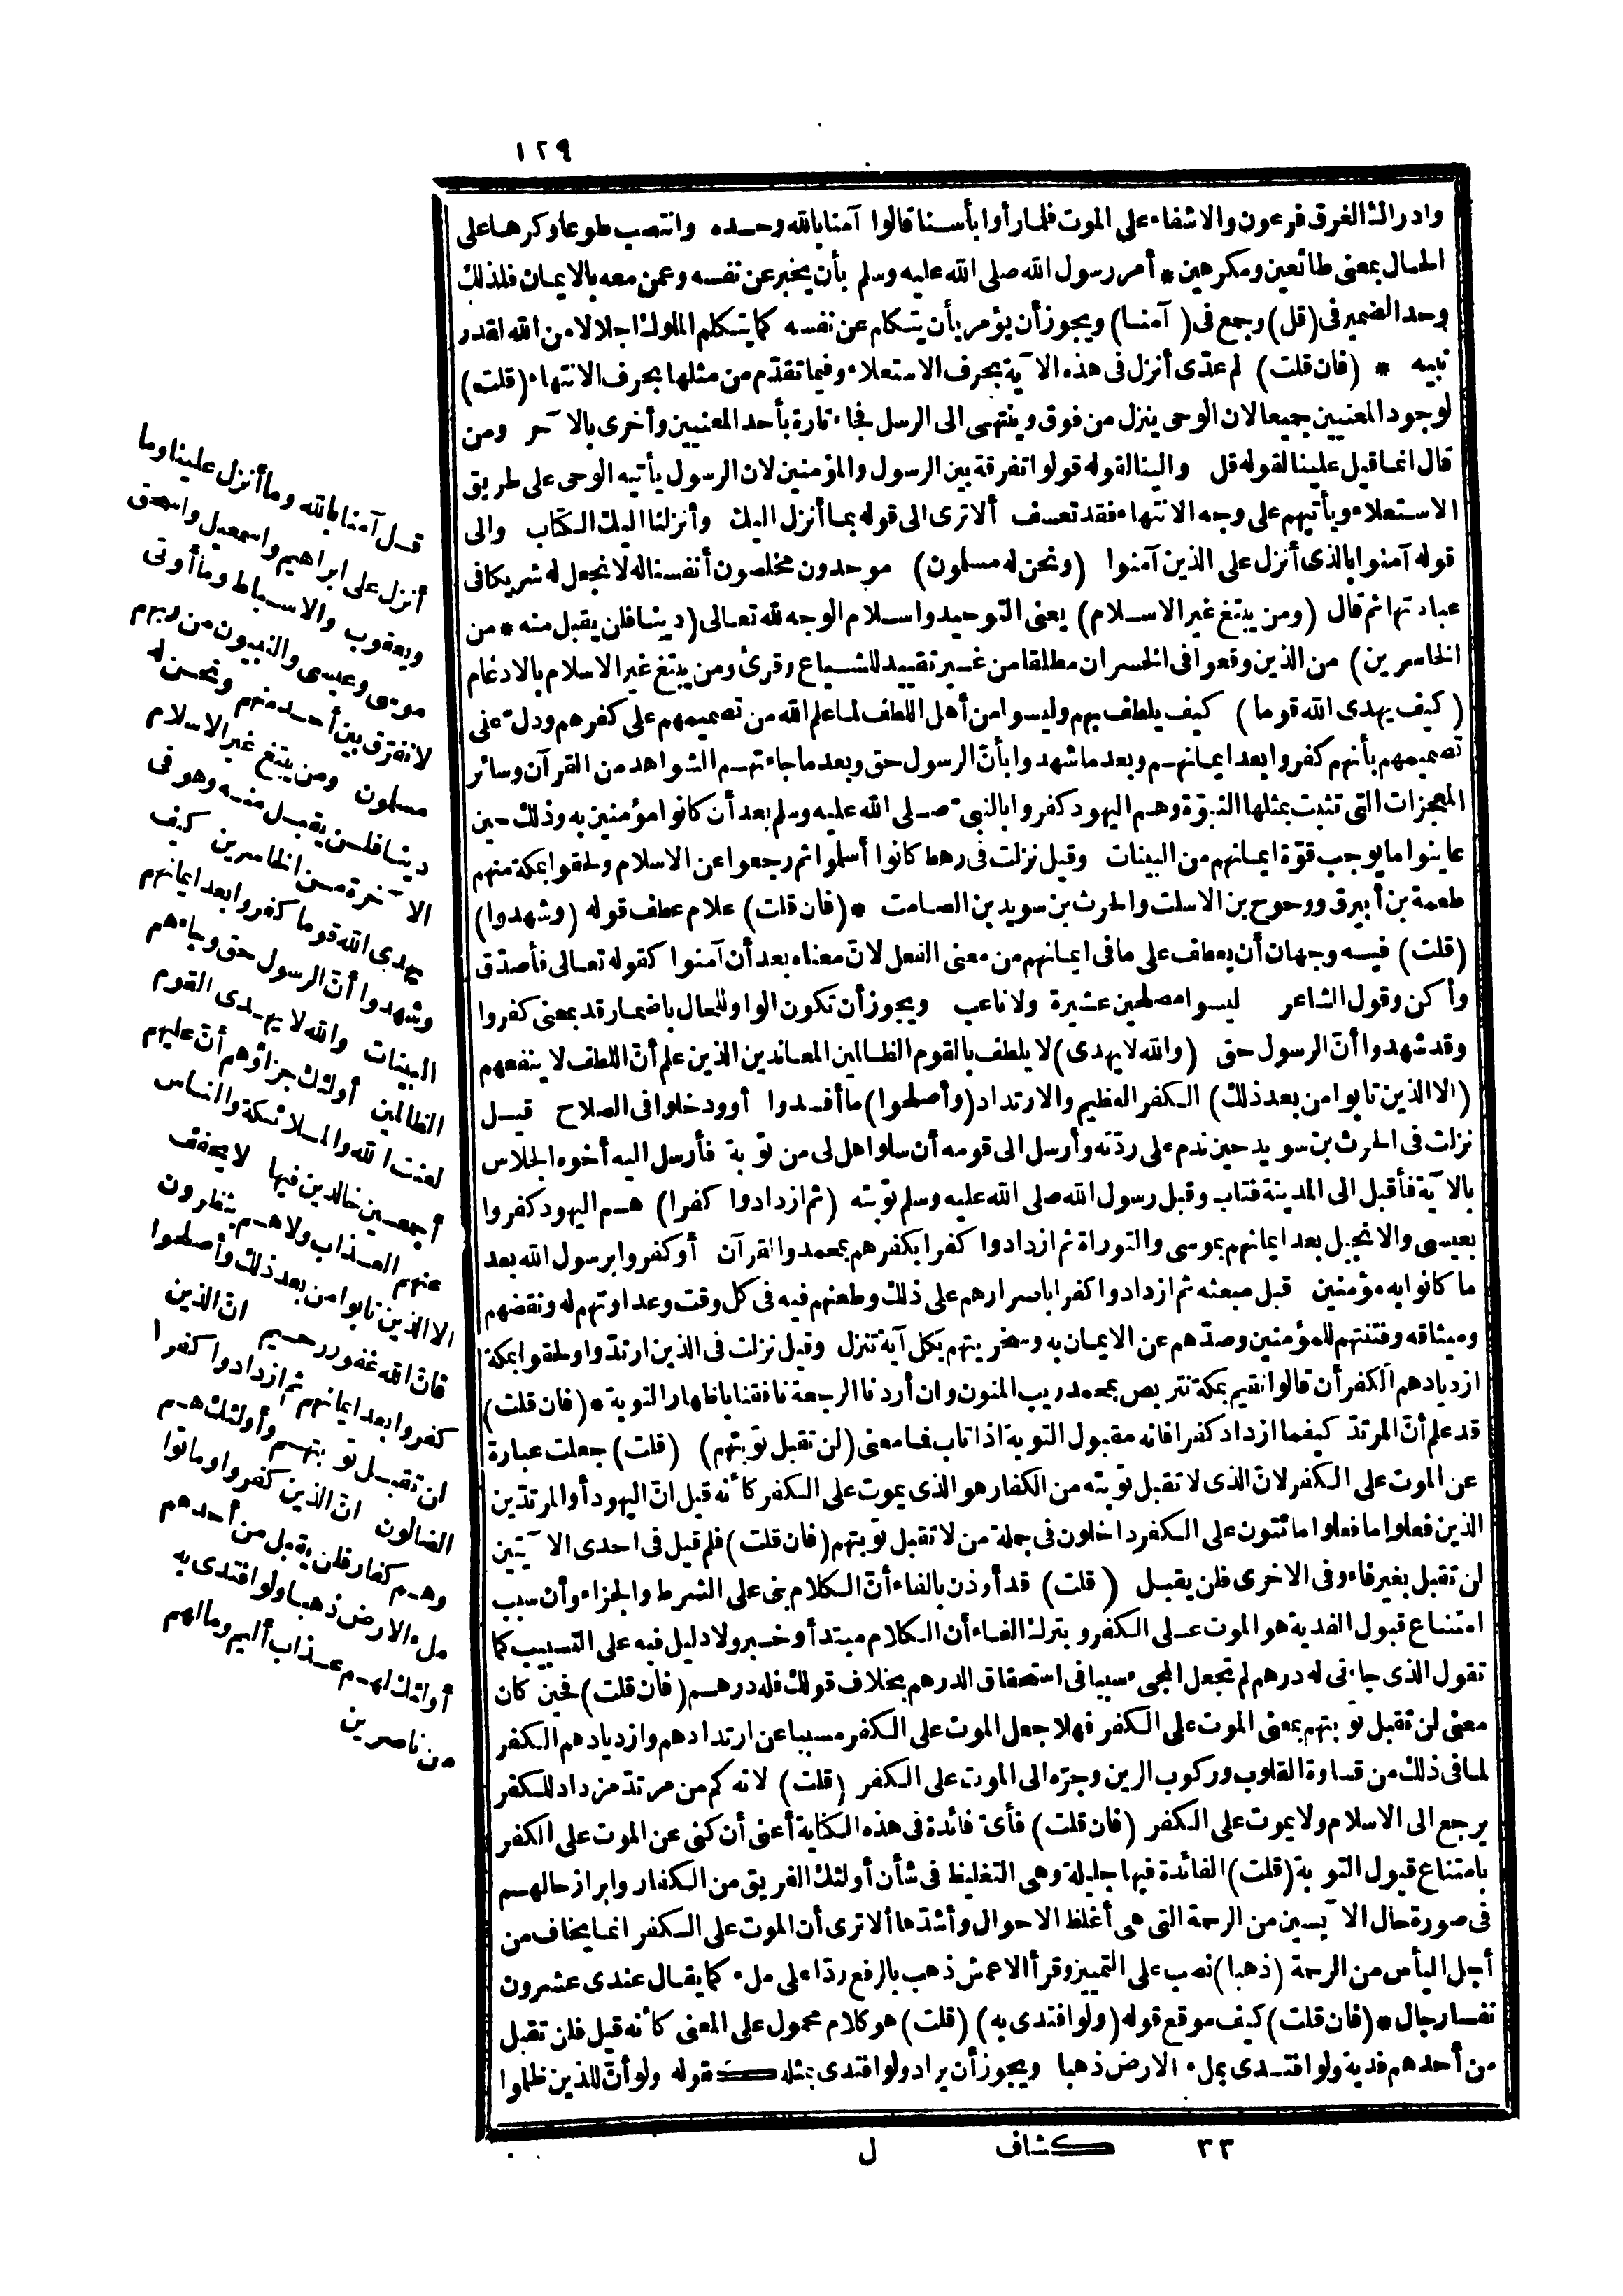 ١٢٩
وادراك الغرق فرعون والاشفاء على الموت فلما رأوا بأسنا قالوا آمنا بالله وحده وانتصب طوعا وكرها على
الحال بمعنى طائعين ومكرهين * أمر رسول الله صلى الله عليه وسلم بأن يخبر عن نفسه وعمن معه بالايمان فلذلك
وحد الضمير فى (قل) وجمع فى (آمنا) ويجوز أن يؤمر بأن يتكلم عن نفسه كما يتكلم الملوك اجلالا من الله لقدر
نبيه * (فان قلت) لم عدّى أنزل فى هذه الآية بحرف الاستعلاء وفيما تقدّم من مثلها بحرف الانتهاء (قلت)
لوجود المعنيين جميعا لان الوحى ينزل من فوق وينتهى الى الرسل فجاء تارة بأحد المعنيين وأخرى بالآخر ومن
قال انما قيل علينا لقوله قل والينا لقوله قولوا تفرقة بين الرسول والمؤمنين لان الرسول يأتيه الوحى على طريق
الاستعلاء ويأتيهم على وجه الانتهاء فقد تعسف ألا ترى الى قوله بما أنزل اليك وأنزلنا اليك الكتاب والى
قوله آمنوا بالذى أنزل على الذين آمنوا (ونحن له مسلمون) موحدون مخلصون أنفسنا له لا نجعل له شريكا فى
عبادتها ثم قال (ومن يبتغ غير الاسلام) يعنى التوحيد واسلام الوجه لله تعالى (دينا فلن يقبل منه * من
الخاسرين) من الذين وقعوا فى الخسران مطلقا من غير تقييد للشياع وقرئ ومن يبتغ غير الاسلام بالادغام
(كيف يهدى الله قوما) كيف يلطف بهم وليسوا من أهل اللطف لما علم الله من تصميمهم على كفرهم ودلّ على
تصميمهم بأنهم كفروا بعد ايمانهم وبعد ما شهدوا بأنّ الرسول حق وبعد ما جاءتهم الشواهد من القرآن وسائر
المعجزات التى تثبت بمثلها النبوّة وهم اليهود كفروا بالنبىّ صلى الله عليه وسلم بعد أن كانوا مؤمنين به وذلك حين
عاينوا ما يوجب قوّة ايمانهم من البينات وقيل نزلت فى رهط كانوا أسلموا ثم رجعوا عن الاسلام ولحقوا بمكة منهم
طعمة بن أبيرق ووحوح بن الاسلت والحرث بن سويد بن الصامت * (فان قلت) علام عطف قوله (وشهدوا)
(قلت) فيه وجهان أن يعطف على ما فى ايمانهم من معنى الفعل لانّ معناه بعد أن آمنوا كقوله تعالى فأصدّق
وأكن وقول الشاعر ليسوا مصلحين عشيرة ولا ناعب ويجوز أن تكون الواو للحال باضمار قد بمعنى كفروا
وقد شهدوا أنّ الرسول حق (والله لا يهدى) لا يلطف بالقوم الظالمين المعاندين الذين علم أنّ اللطف لا ينفعهم
(الا الذين تابوا من بعد ذلك) الكفر العظيم والارتداد (وأصلحوا) ما أفسدوا أو ودخلوا فى الصلاح قيل
نزلت فى الحرث بن سويد حين ندم على ردّته وأرسل الى قومه أن سلوا هل لى من توبة فأرسل اليه أخوه الجلاس
بالآية فأقبل الى المدينة فتاب وقبل رسول الله صلى الله عليه وسلم توبته (ثم ازدادوا كفرا) هم اليهود كفروا
بعيسى والانجيل بعد ايمانهم بموسى والتوراة ثم ازدادوا كفرا بكفرهم بمحمد والقرآن أو كفروا برسول الله بعد
ما كانوا به مؤمنين قبل مبعثه ثم ازدادوا كفرا باصرارهم على ذلك وطعنهم فيه فى كل وقت وعداوتهم له ونقضهم
وميثاقه وفتنتهم للمؤمنين وصدّهم عن الايمان به وسخريتهم بكل آية تنزل وقيل نزلت فى الذين ارتدّوا ولحقوا بمكة
ازديادهم الكفر أن قالوا نقيم بمكة نتربص بمحمد ريب المنون وان أردنا الرجعة نافقنا باظهار التوبة * (فان قلت)
قد علم أنّ المرتدّ كيفما ازداد كفرا فانه مقبول التوبة اذا تاب فما معنى (لن تقبل توبتهم) (قلت) جعلت عبارة
عن الموت على الكفر لانّ الذى لا تقبل توبته من الكفار هو الذى يموت على الكفر كأنه قيل انّ اليهود أو المرتدّين
الذين فعلوا ما فعلوا مائتون على الكفر داخلون فى جملة من لا تقبل توبتهم (فان قلت) فلم قيل فى احدى الآيتين
لن تقبل بغير فاء وفى الاخرى فلن يقبل (قلت) قد أوذن بالفاء أنّ الكلام بنى على الشرط والجزاء وأن سبب
امتناع قبول الفدية هو الموت على الكفر وبترك الفاء أن الكلام مبتدأ وخبر ولا دليل فيه على التسبيب كما
تقول الذى جاءنى له درهم لم تجعل المجىء سببا فى استحقاق الدرهم بخلاف قولك فله درهم (فان قلت) فحين كان
معنى لن تقبل توبتهم بمعنى الموت على الكفر فهلا جعل الموت على الكفر مسببا عن ارتدادهم وازديادهم الكفر
لما فى ذلك من قساوة القلوب وركوب الرين وجرّه الى الموت على الكفر (قلت) لانه كم من مرتدّ مزداد للكفر
يرجع الى الاسلام ولا يموت على الكفر (فان قلت) فأىّ فائدة فى هذه الكناية أعنى أن كنى عن الموت على الكفر
بامتناع قبول التوبة (قلت) الفائدة فيها جليلة وهى التغليظ فى شأن أولئك الفريق من الكفار وابراز حالهم
فى صورة حال الآيسين من الرحمة التى هى أغلظ الاحوال وأشدّها ألا ترى أن الموت على الكفر انما يخاف من
أجل اليأس من الرحمة (ذهبا) نصب على التمييز وقرأ الاعمش ذهب بالرفع ردّا على ملء كما يقال عندى عشرون
نفسا رجال * (فان قلت) كيف موقع قوله (ولو افتدى به) (قلت) هو كلام محمول على المعنى كأنه قيل فلن تقبل
من أحدهم فدية ولو افتدى بملء الارض ذهبا ويجوز أن يراد ولو افتدى بمثله كقوله ولو أنّ للذين ظلموا
قل آمنا بالله وما أنزل علينا وما
أنزل على ابراهيم واسمعيل واسحق
ويعقوب والاسباط وما أوتى
موسى وعيسى والنبيون من ربهم
لا نفرّق بين أحد منهم ونحن له
مسلمون ومن يبتغ غير الاسلام
دينا فلن يقبل منه وهو فى
الآخرة من الخاسرين كيف
يهدى الله قوما كفروا بعد ايمانهم
وشهدوا أنّ الرسول حق وجاءهم
البينات والله لا يهدى القوم
الظالمين أولئك جزاؤهم أنّ عليهم
لعنت الله والملائكة والناس
أجمعين خالدين فيها لا يخفف
عنهم العذاب ولا هم ينظرون
الا الذين تابوا من بعد ذلك وأصلحوا
فانّ الله غفور رحيم انّ الذين
كفروا بعد ايمانهم ثم ازدادوا كفرا
لن تقبل توبتهم وأولئك هم
الضالون انّ الذين كفروا وماتوا
وهم كفار فلن يقبل من أحدهم
ملء الارض ذهبا ولو افتدى به
أولئك لهم عذاب أليم وما لهم
من ناصرين
٣٣ كشاف ل